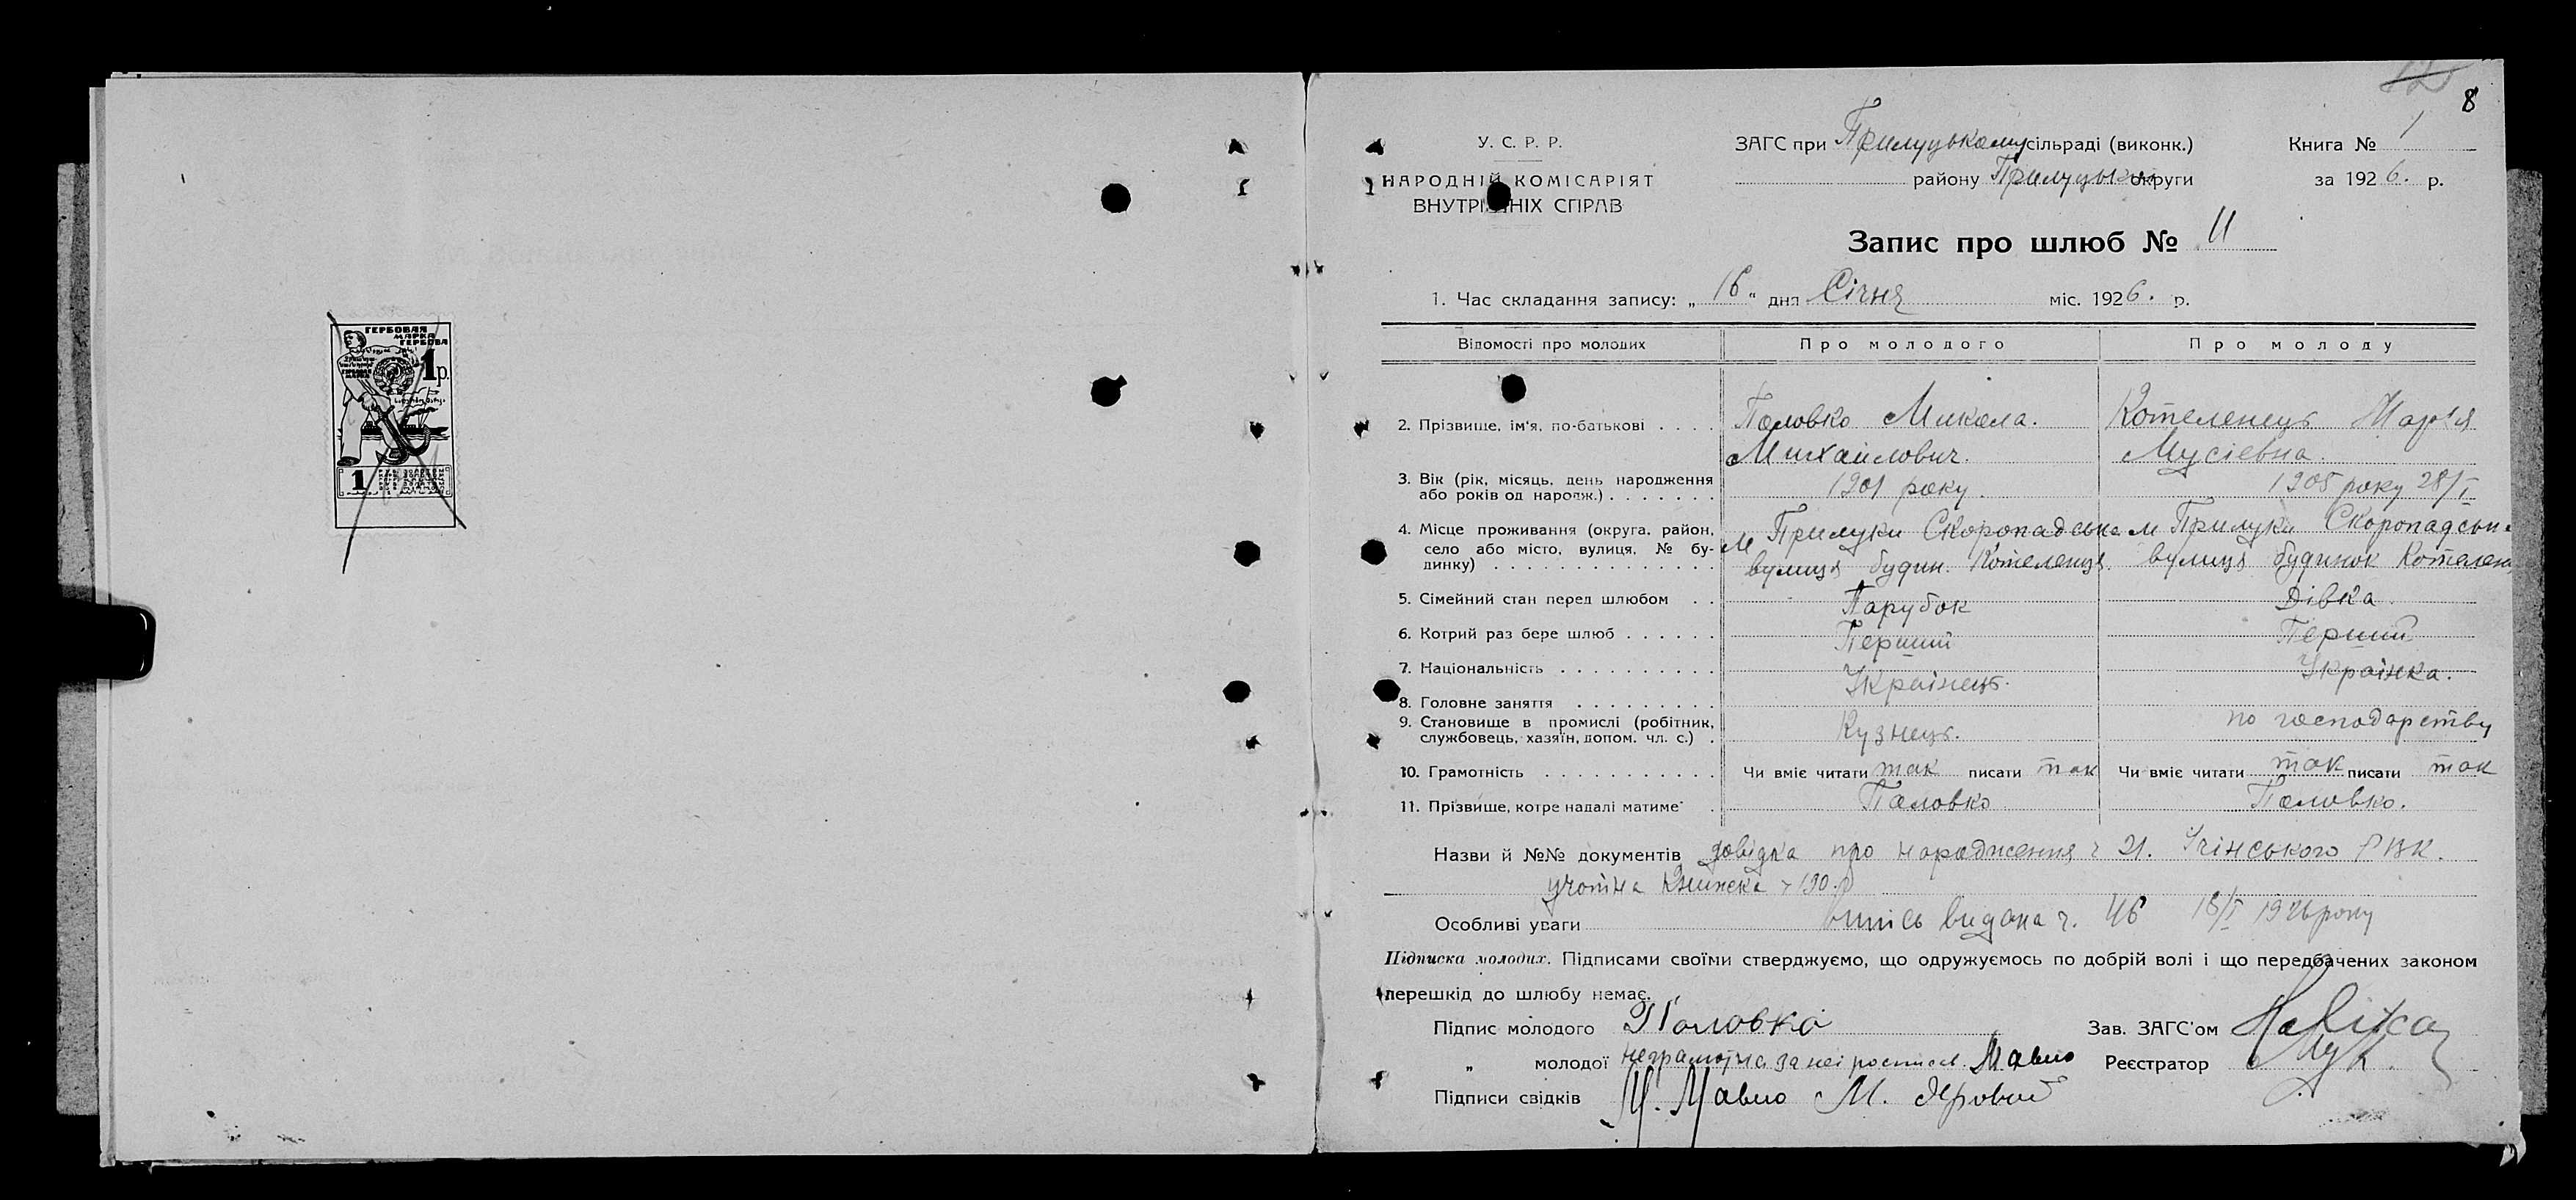 ГЕРБОВАЯ
МАРКА
ГЕРБОВА
1 р.
1
8
У. С. Р. Р.
НАРОДНІЙ КОМІСАРІЯТ
ВНУТРІШНІХ СПРАВ
ЗАГС при Прилуцькому сільраді (виконк.)
району Прилуцької округи
Книга № 1
за 1926. р.
Запис про шлюб № 11
1. Час складання запису: „ 16 " дня Січня міс. 1926. р.
Відомості про молодих Про молодого Про молоду
2. Прізвище, ім'я, по-батькові . . . . Половко Микола. Котеленець Мар'я
Михайлович. Мусіевна.
3. Вік (рік, місяць, день народження
або років од народж.) . . . . . . . 1901 року. 1905 року 28/I
4. Місце проживання (округа, район,
село або місто, вулиця, № бу-
динку) . . . . . . . . . . . . . .
м Прилуки Скоропадська
вулиця будин. Котеленця.
м Прилуки Скоропадськ
вулиця будинок Котелен
5. Сімейний стан перед шлюбом . . Парубок Дівка
6. Котрий раз бере шлюб . . . . . . Перший Перший
7. Національність . . . . . . . . . . Українець. Українка.
8. Головне заняття . . . . . . . . .
9. Становище в промислі (робітник,
службовець, хазяїн, допом. чл. с.) . Кузнець. по господарству
10. Грамотність . . . . . . . . . . . Чи вміє читати так писати так Чи вміє читати так писати так
11. Прізвище, котре надалі матиме . Половко Половко.
Назви й №№ документів довідка про народження ч 21. Ічінського РВК.
учотна книжка 190.
Особливі уваги випись видана ч. 46 18/I 1926 року
Підписка молодих. Підписами своїми стверджуємо, що одружуємось по добрій волі і що передбачених законом
перешкід до шлюбу немає.
Підпис молодого Половко Зав. ЗАГС'ом
„ молодої неграмотна за неї росписався Мавло Реєстратор
Підписи свідків М. Мавло М. Яровой